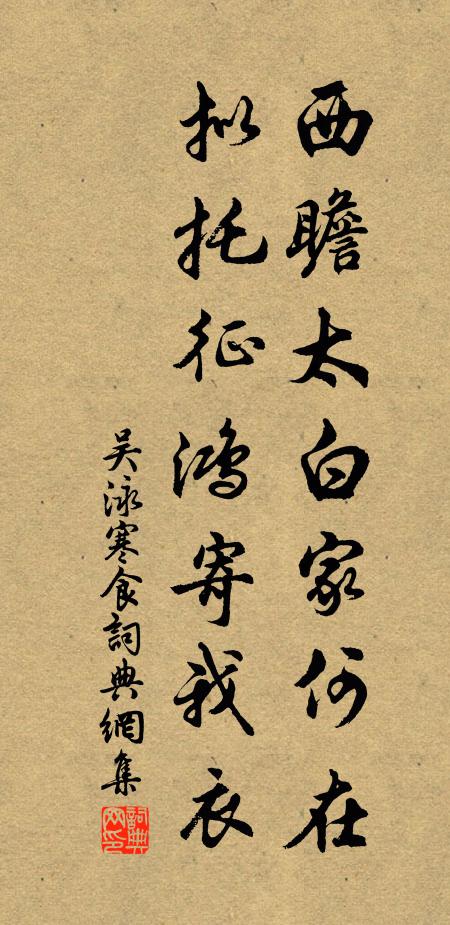 西瞻太白家何在
拟托征鸿寄我衣
吴泳寒食詞典網集
詞典网印